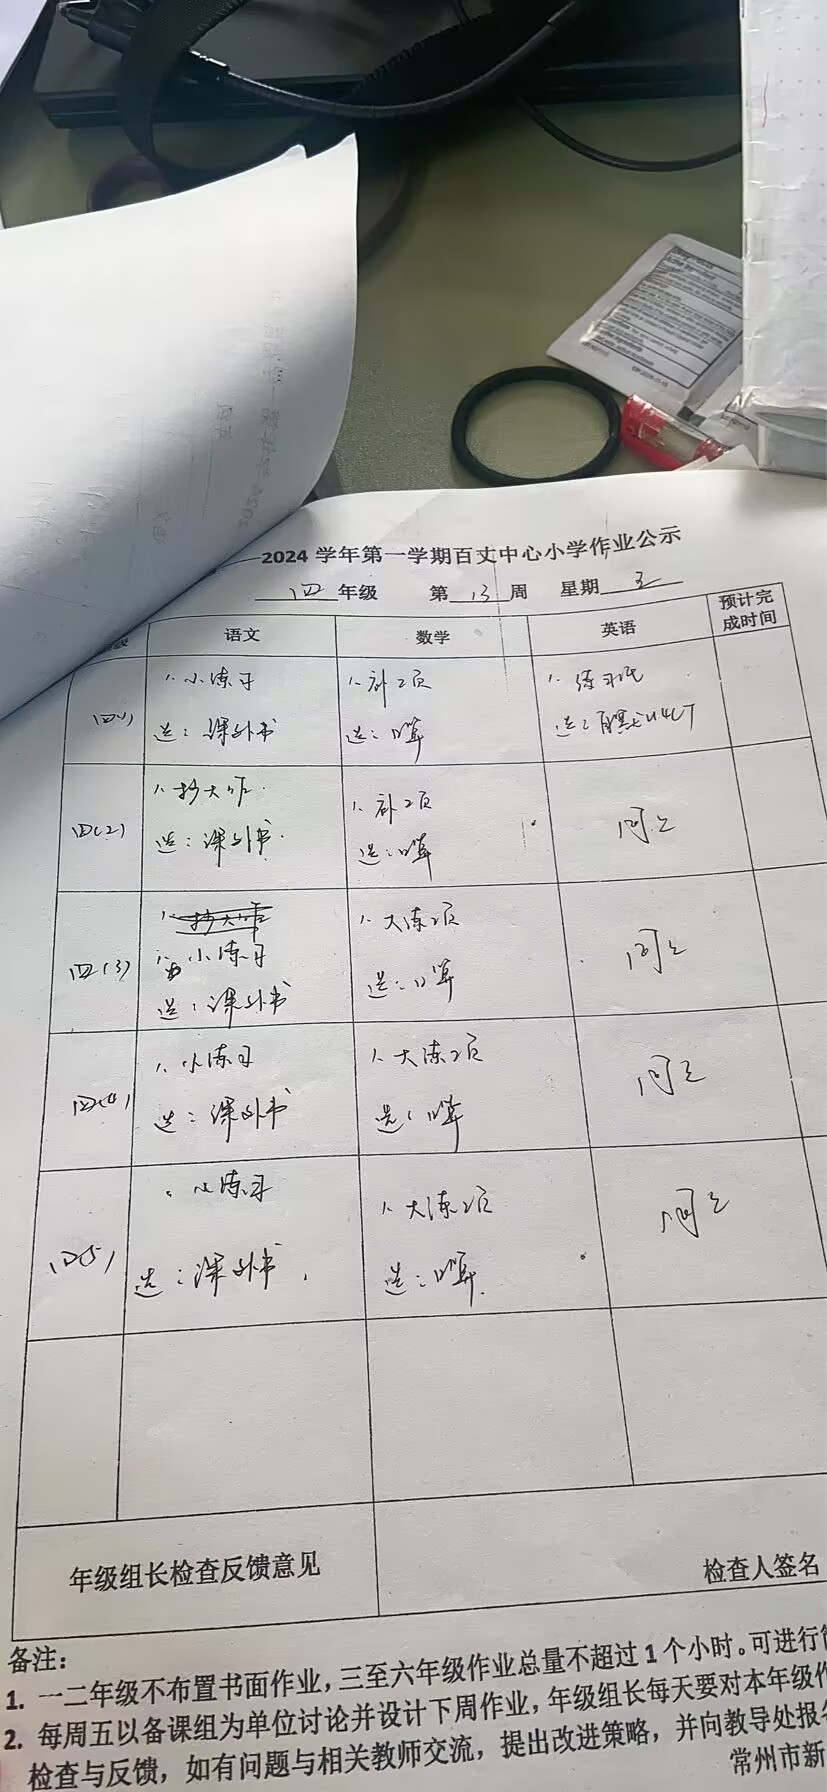 2024 学年第一学期百丈中心小学作业公示
四 年级 第 13 周 星期 五
语文 数学 英语 预计完成时间
四(1)
1. 小练习
选：课外书
1. 补2页
选：口算
1. 练习纸
选：自默U4CT
四(2)
1. 抄大作
选：课外书
1. 补2页
选：口算
同上
四(3)
1. 抄大作
1. 小练习
选：课外书
1. 大练2页
选：口算
同上
四(4)
1. 小练习
选：课外书
1. 大练2页
选：口算
同上
四(5)
小练习
选：课外书
1. 大练2页
选：口算
同上
年级组长检查反馈意见
检查人签名
备注：
1. 一二年级不布置书面作业，三至六年级作业总量不超过 1 个小时。可进行
2. 每周五以备课组为单位讨论并设计下周作业，年级组长每天要对本年级作
检查与反馈，如有问题与相关教师交流，提出改进策略，并向教导处报
常州市新